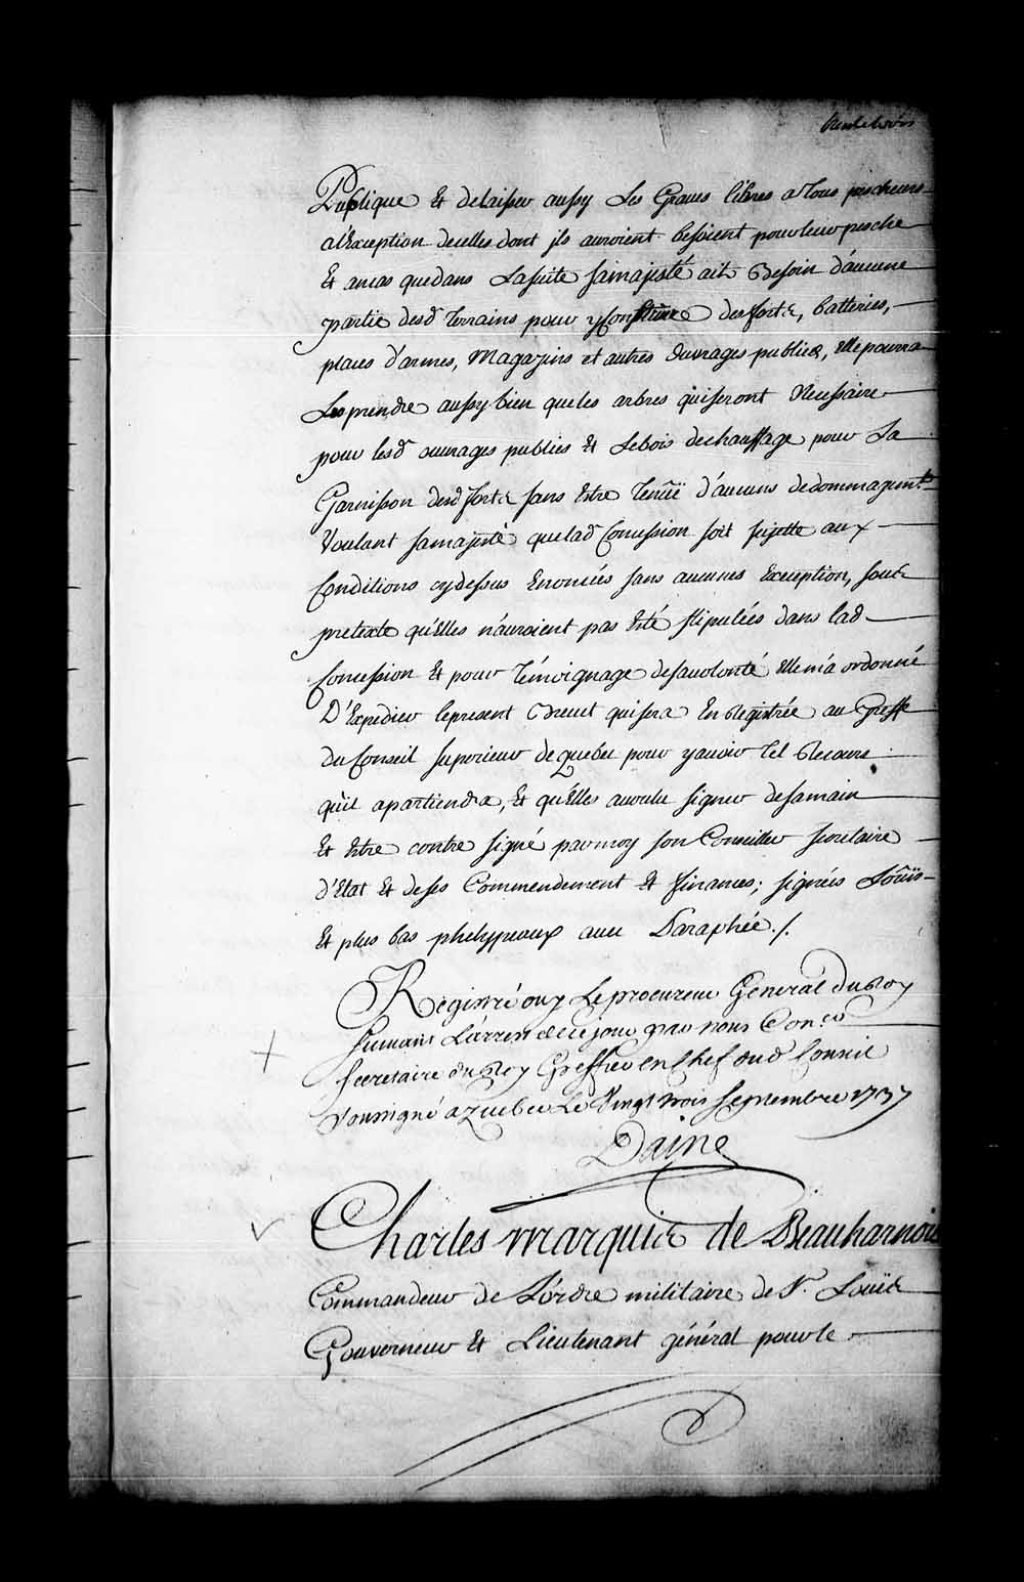 Publique Et delaisser aussy Les Graves libres a Tous pescheurs
a l'Exception decelles dont jls auroient besoient pour leur pesche
Et aucas que dans Lasuite Samajesté ait Besoin d'aucune
partie desd Terrains pour y Construire des forts, batteries,
places d'armes, Magazins et autres Ouvrages publics, Elle pourra
Les prendre aussy bien que les arbres qui seront Necessaire
pour lesd ouvrages publics Et Le bois de chauffage pour La
Garnison desd forts sans Estre Tenüe d'aucuns dedommagemts
Voulant Samajesté que lad Concession soit sujette aux
Conditions cy dessus Enoncées sans aucunes Exception, sous
pretexte qu'Elles n'auroient pas Esté stipulées dans lad
Concession Et pour Témoignage de sa volonté Elle m'a ordonné
D'Expedier le present Brevet qui sera Enregistrée au Greffe
du Conseil Superieur de Quebec pour y avoir Tel Recours
qu'il apartiendra, Et qu'Elles avoulu signer de samain
Et Estre contre signé par moy son Conseiller Secretaire
d'Etat Et de ses Commendement Et finances; signées Loüis
Et plus bas phelypeaux avec Paraphée ./.
Registré ouy Le procureur General du Roy
suivant L'arrest de ce jour par nous Coner
secretaire du Roy Greffier en Chef aud Conseil
soussigné a Quebec Le Vingt trois septembre 1737
Daine
Charles marquis de Beauharnois
Commandeur de L'ordre militaire de St. Loüis
Gouverneur Et Lieutenant général pour le